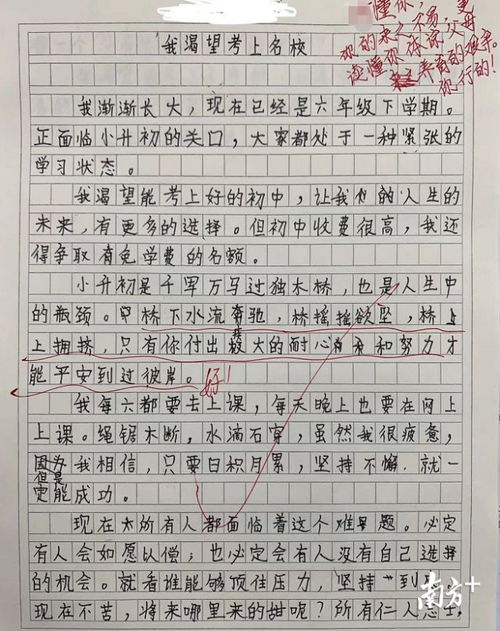 懂你,
你的来之不易,父母
读懂你,张家父母
养育的艰辛。
你行的!
我渴望考上名校
我渐渐长大,现在已经是六年级下学期。
正面临小升初的关口,大家都处于一种紧张的
学习状态。
我渴望能考上好的初中,让我们的人生的
未来,有更多的选择。但初中收费很高,我还
得争取有免学费的名额。
小升初是千军万马过独木桥,也是人生中
的瓶颈。桥下水流奔驰,桥摇摇欲坠,桥上
上拥挤,只有你付出极大的耐心和努力才
能平安到过彼岸。好!
我每六都要去上课,每天晚上也要在网上
上课。绳锯木断,水滴石穿,虽然我很疲惫,
但是我相信,只要日积月累,坚持不懈,就一
定能成功。
现在所有人都面临着这个难题。必定
有人会如愿以偿;也必定会有人没有自己选择
的机会。就看谁能够顶住压力,坚持到
现在不苦,将来哪里来的甜呢?所有仁人志士,
南方+